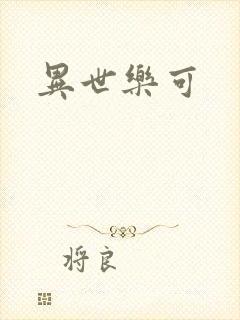 異世樂可
将良